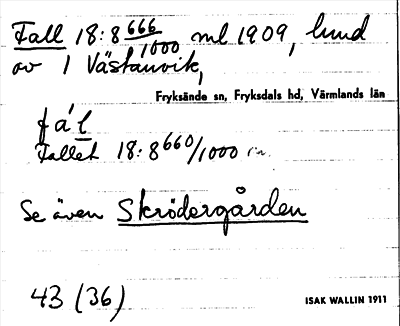 Fall 18:8 666/1000 ml 1909, lund
av 1 Västanvik,
Fryksände sn, Fryksdals hd, Värmlands län
fa'l
Fallet 18:8 660/1000 m.
Se även Skrödergården
43 (36)
ISAK WALLIN 1911